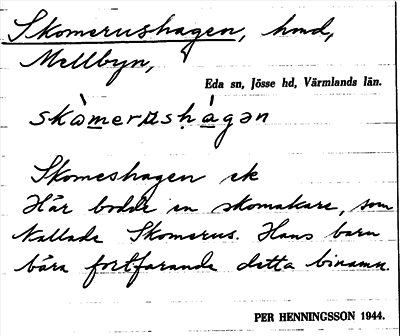 Skomerushagen, hmd,
Mellbyn,
Eda sn, Jösse hd, Värmlands län.
skàmerusḥágən
Skomeshagen ek
Här bodde en skomakare, som
kallade Skomerus. Hans barn
bära fortfarande detta binamn.
PER HENNINGSSON 1944.